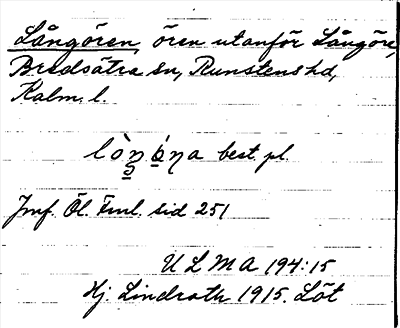 Långören, ören utanför Långöre,
Bredsätra sn, Runstens hd,
Kalm. l.
best. pl.
Jmf. Öl. Fml. sid 251
ULMA 194:15
Hj. Lindroth 1915. Löt